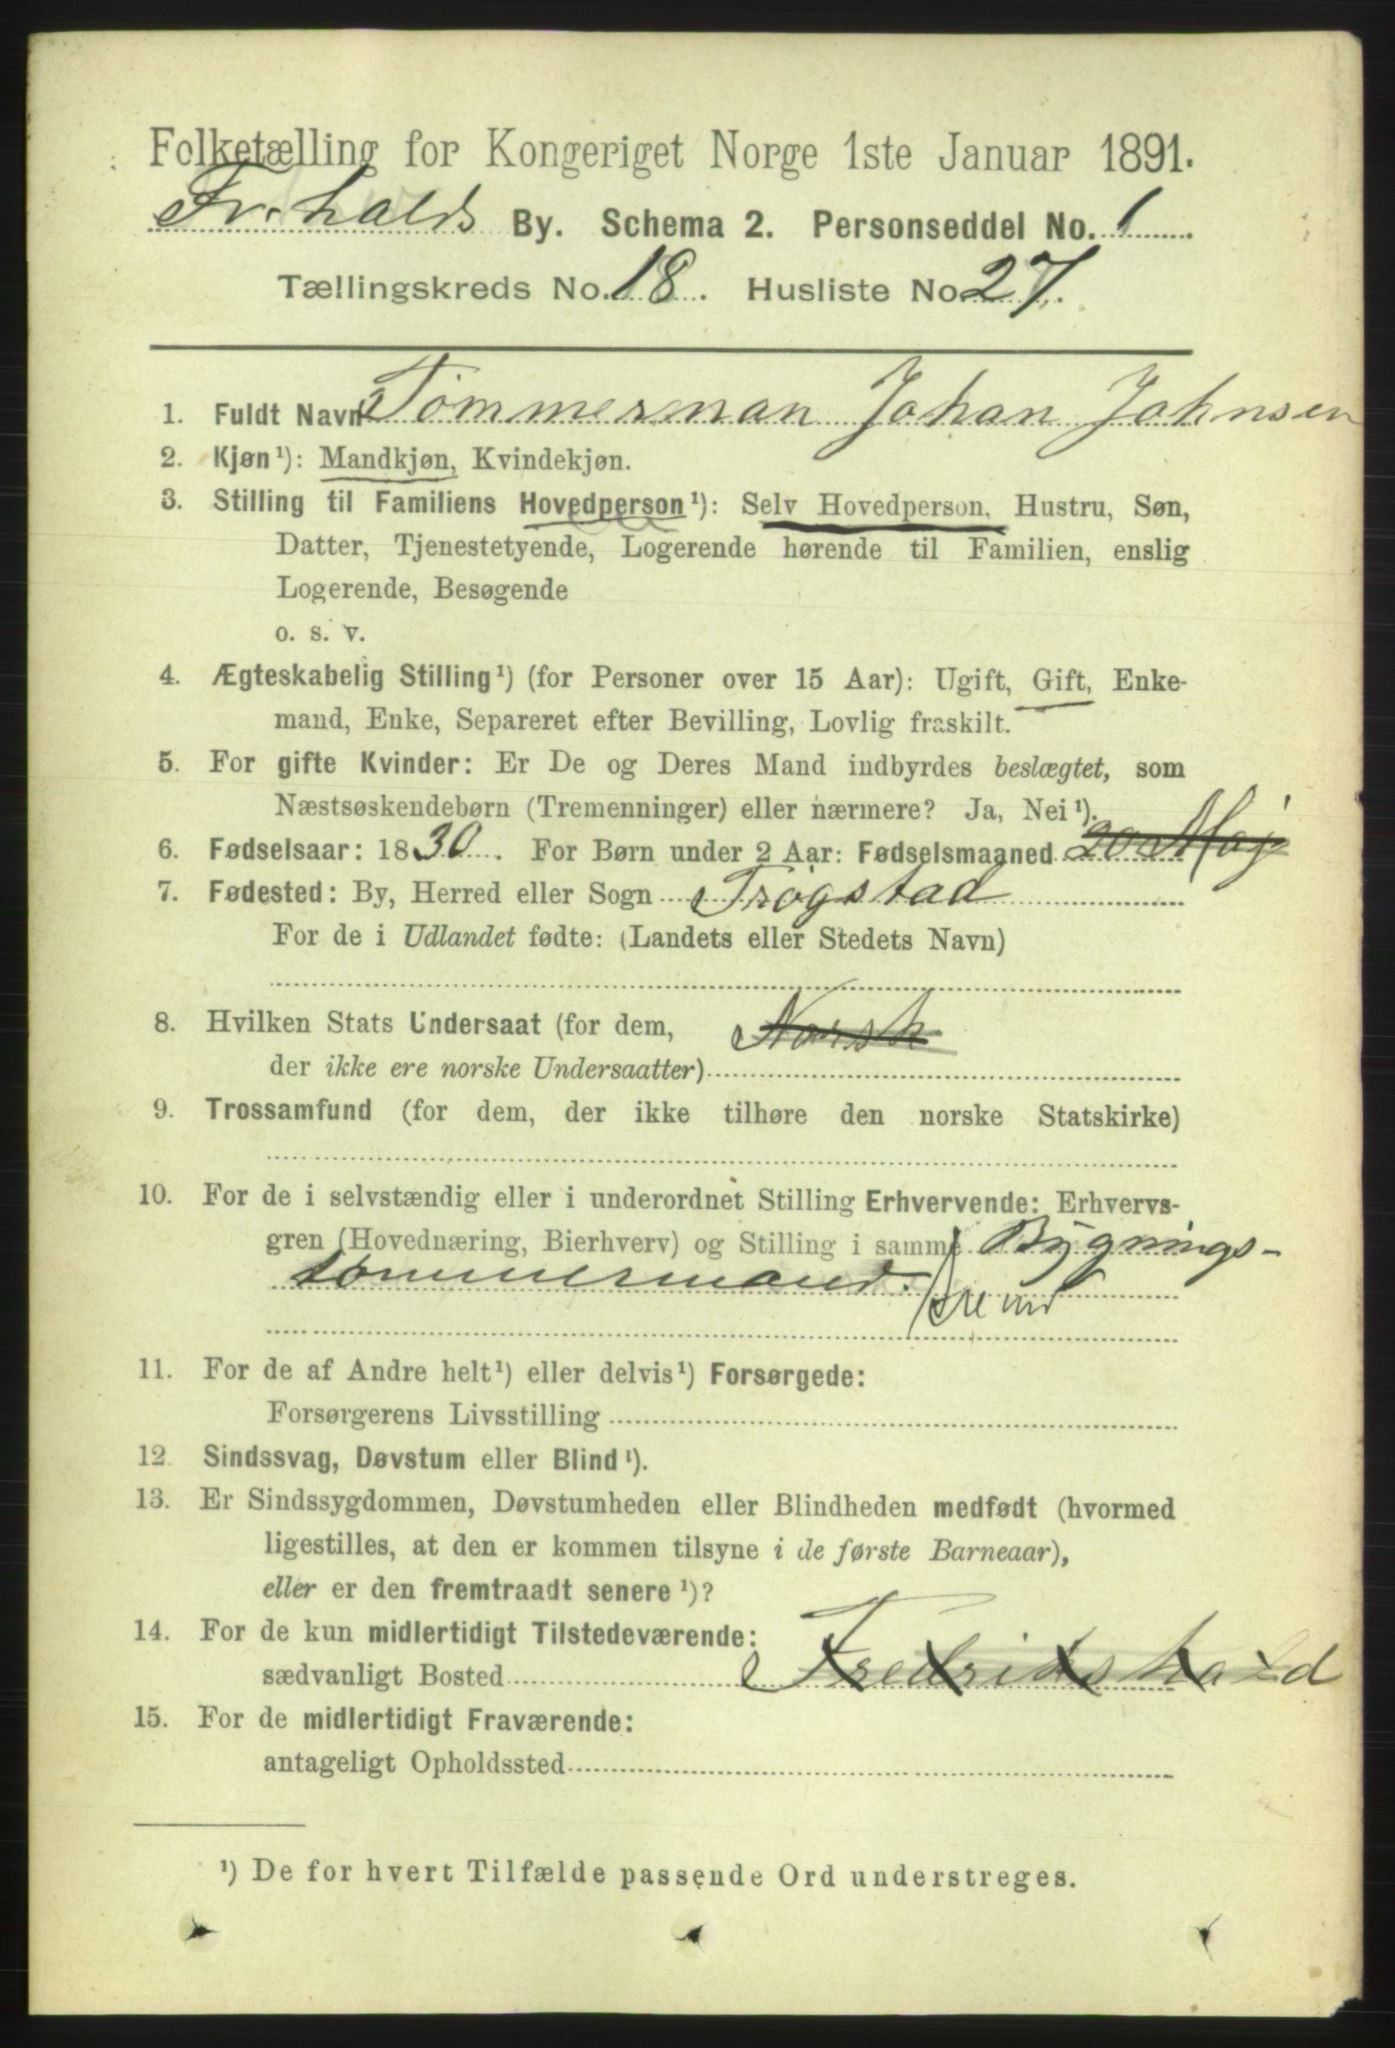 Folketælling for Kongeriget Norge 1ste Januar 1891.
Fr.halds By. Schema 2. Personseddel No. 1
Tællingskreds No. 18. Husliste No 27.
1. Fuldt Navn Tömmerman Johan Johnsen
2. Kjøn¹): Mandkjøn, Kvindekjøn.
3. Stilling til Familiens Hovedperson¹): Selv Hovedperson, Hustru, Søn,
Datter, Tjenestetyende, Logerende hørende til Familien, enslig
Logerende, Besøgende
o. s. v.
4. Ægteskabelig Stilling¹) (for Personer over 15 Aar): Ugift, Gift, Enke-
mand, Enke, Separeret efter Bevilling, Lovlig fraskilt.
5. For gifte Kvinder: Er De og Deres Mand indbyrdes beslægtet, som
Næstsøskendebørn (Tremenninger) eller nærmere? Ja, Nei¹).
6. Fødselsaar: 1830. For Børn under 2 Aar: Fødselsmaaned 20 Maj
7. Fødested: By, Herred eller Sogn Trögstad
For de i Udlandet fødte: (Landets eller Stedets Navn)
8. Hvilken Stats Undersaat (for dem, Norsk
der ikke ere norske Undersaatter)
9. Trossamfund (for dem, der ikke tilhøre den norske Statskirke)
10. For de i selvstændig eller i underordnet Stilling Erhvervende: Erhvervs-
gren (Hovednæring, Bierhverv) og Stilling i samme Bygnings-
tömmermand.
11. For de af Andre helt¹) eller delvis¹) Forsørgede:
Forsørgerens Livsstilling
12. Sindssvag, Døvstum eller Blind¹).
13. Er Sindssygdommen, Døvstumheden eller Blindheden medfødt (hvormed
ligestilles, at den er kommen tilsyne i de første Barneaar),
eller er den fremtraadt senere¹)?
14. For de kun midlertidigt Tilstedeværende:
sædvanligt Bosted Fredrikshald
15. For de midlertidigt Fraværende:
antageligt Opholdssted
¹) De for hvert Tilfælde passende Ord understreges.